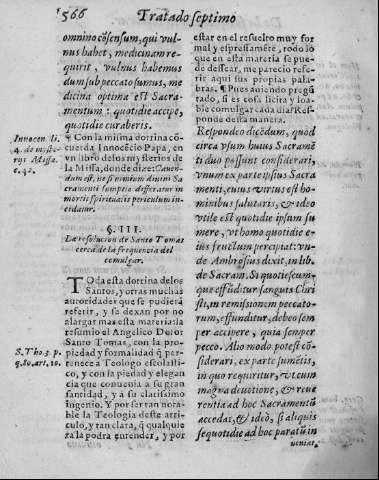 566
Tratado septimo
omnino cõsensum, qui vul-
nus habet, medicinam re-
quirit, vulnus habemus
dum sub peccato sumus, me
dicina optima est Sacra-
mentum: quotidie accipe,
quotidie curaberis.
¶ Con la misma dotrina cõ-
cuerda Innocẽcio Papa, en
vn libro de los mysterios de
la Missa, donde dize: Cauen-
dum est, ne si nimium diuini Sa
cramenti sumptio differatur in
mortis spiritualis periculum in-
cidatur.
Innocen. li.
4. de myste-
rijs Missa.
c. 42.
§. III.
La resolucion de Santo Tomas
cerca de la frequencia del
comulgar.
TOda esta dotrina de los
Santos, y otras muchas
autoridades que se pudierã
referir, y se dexan por no
alargar mas esta materia, la
resumio el Angelico Dotor
Santo Tomas, con la pro-
piedad y formalidad q̃ per-
tenece a Teologo escolasti-
co, y con la piedad y elegan
cia que conuenia a su gran
santidad, y a su clarissimo
ingenio. Y por ser tan nota-
ble la Teologia deste arti-
culo, y tan clara, q̃ qualquie
ra la podra entender, y por
S. Tho 3. p.
q. 80. art. 10.
estar en el resuelto muy for
mal y espressamẽte, todo lo
que en esta materia se pue-
de dessear, me parecio refe-
rir aqui sus propias pala-
bras. ¶ Pues auiendo pregũ
tado, si es cosa licita y loa-
ble comulgar cada dia? Res-
ponde desta manera.
Respondeo dicẽdum, quod
circa vsum huius Sacramẽ
ti duo possunt considerari,
vnum ex parte ipsius Sacra
menti, cuius virtus est ho-
minibus salutaris, & ideo
vtile est quotidie ipsum su
mere, vt homo quotidie e-
ius fructum percipiat: vn-
de Ambrosius dixit, in lib.
de Sacram. Si quotiescum-
que effũditur sanguis Chri
sti, in remissionem peccato-
rum, effunditur, debeo sem
per accipere, quia semper
pecco. Alio modo potest cõ-
siderari, ex parte sumẽtis,
in quo requiritur, vt cum
magna deuotione, & reue
rentia ad hoc Sacramentũ
accedat, & ideò, si aliquis
se quotidie ad hoc paratũ in
ueniat,